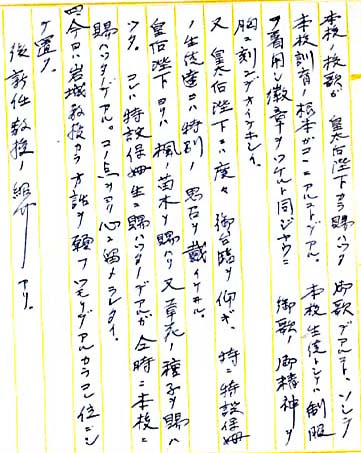 本校ノ校歌ガ 皇后陛下カラ賜ハッタ御歌デアルト、ソシテ
本校訓育ノ根本ガココニアルノデアル。本校生徒トシテハ制服
ヲ着用シ徽章ヲツケルト同ジヤウニ 御歌ノ御精神ヲ
胸ニ刻ンデオイテホシイ。
又 皇太后陛下ニハ度々御台臨ヲ仰ギ、特ニ特設保姆
ノ生徒達ニハ特別ノ思召ヲ戴イテヰル。
皇后陛下ヨリハ楓ノ苗木ヲ賜ハリ又草花ノ種子ヲ賜ハ
ツタ。コレハ特設保姆生ニ賜ハッタノデアルガ同時ニ本校ニ
賜ハッタノデアル。コノ点ヨリ心ニ留メラレタイ。
四 今日ハ岩城教授カラオ話ヲ願フツモリデアルカラコレ位ニシ
テ置ク。
後新任教授ノ紹介アリ。